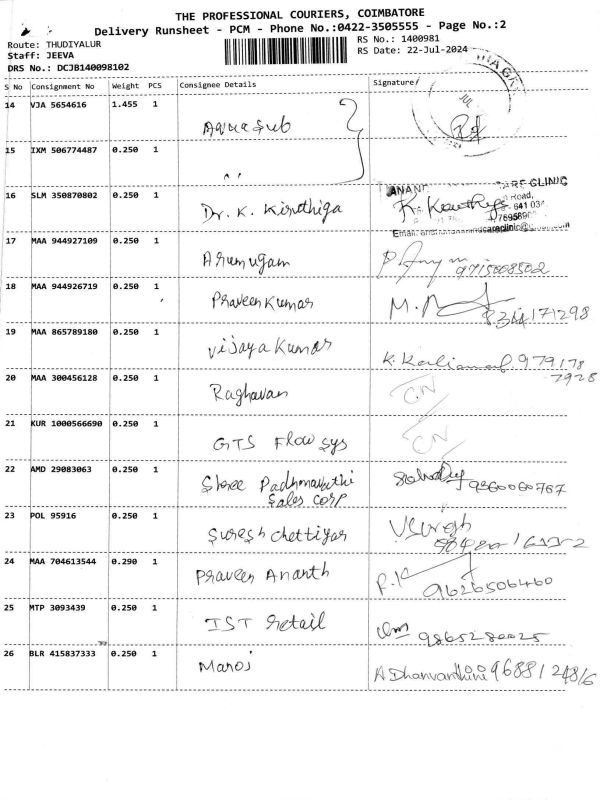 THE PROFESSIONAL COURIERS, COIMBATORE
Delivery Runsheet - PCM - Phone No.:0422-3505555 - Page No.:2
Route: THUDIYALUR
RS No.: 1400981
Staff: JEEVA
RS Date: 22-Jul-2024
DRS No.: DCJB140098102
S No Consignment No Weight PCS Consignee Details Signature/
14 VJA 5654616 1.455 1
Aqua Sub
15 IXM 506774487 0.250 1
" "
16 SLM 350870802 0.250 1
Dr. K. Kiruthiga
CARE CLINIC
Road,
17 MAA 944927109 0.250 1
Arumugam
9715008502
18 MAA 944926719 0.250 1
Praveen Kumar
19 MAA 865789180 0.250 1
Vijaya Kumar
979178
7928
20 MAA 300456128 0.250 1
Raghavan
21 KUR 1000566690 0.250 1
GTS Flow Sys
22 AMD 29083063 0.250 1
Shree Padhmavathi
Sales Corp
23 POL 95916 0.250 1
Suresh Chettiyar
24 MAA 704613544 0.290 1
Praveen Ananth
9626506460
25 MTP 3093439 0.250 1
IST retail
9865280025
26 BLR 415837333 0.250 1
Manoj